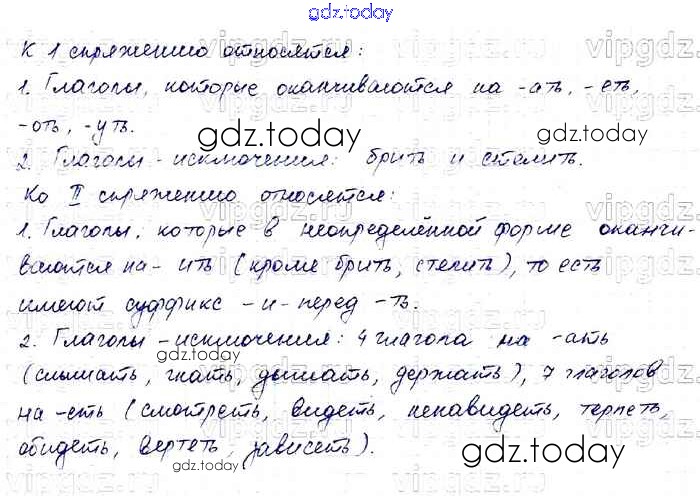 gdz.today
К 1 спряжению относятся:
1. Глаголы, которые оканчиваются на -ать, -еть,
-оть, -уть.
gdz.today
2. Глаголы-исключения: брить и стелить.
Ко II спряжению относятся:
1. Глаголы, которые в неопределённой форме оканчи-
ваются на -ить (кроме брить, стелить), то есть
имеют суффикс -и- перед -ть.
gdz.today
2. Глаголы-исключения: 4 глагола на -ать
gdz.today
(слышать, гнать, дышать, держать), 7 глаголов
на -еть (смотреть, видеть, ненавидеть, терпеть,
обидеть, вертеть, зависеть).
gdz.today
gdz.today